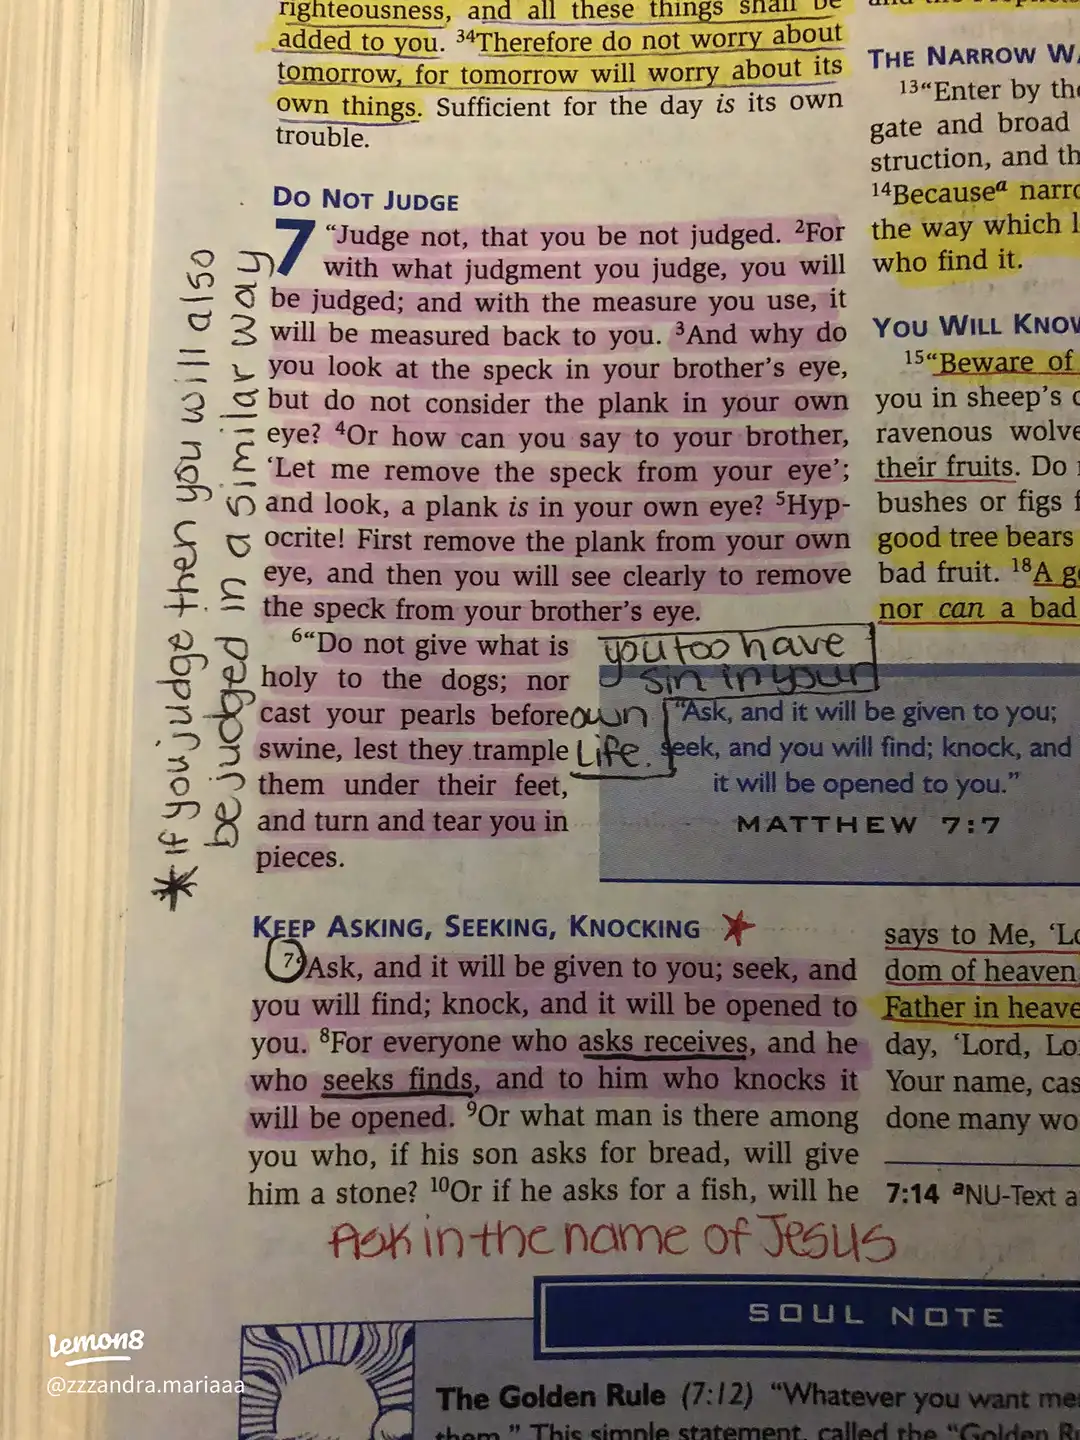 righteousness, and all these things shall be
added to you. ³⁴Therefore do not worry about
tomorrow, for tomorrow will worry about its
own things. Sufficient for the day is its own
trouble.
DO NOT JUDGE
7 “Judge not, that you be not judged. ²For
with what judgment you judge, you will
be judged; and with the measure you use, it
will be measured back to you. ³And why do
you look at the speck in your brother’s eye,
but do not consider the plank in your own
eye? ⁴Or how can you say to your brother,
‘Let me remove the speck from your eye’;
and look, a plank is in your own eye? ⁵Hyp-
ocrite! First remove the plank from your own
eye, and then you will see clearly to remove
the speck from your brother’s eye.
⁶“Do not give what is
holy to the dogs; nor
cast your pearls before
swine, lest they trample
them under their feet,
and turn and tear you in
pieces.
* If you judge then you will also
be judged in a similar way
you too have
sin in your
own
Life.
“Ask, and it will be given to you;
seek, and you will find; knock, and
it will be opened to you.”
MATTHEW 7:7
KEEP ASKING, SEEKING, KNOCKING
⁷“Ask, and it will be given to you; seek, and
you will find; knock, and it will be opened to
you. ⁸For everyone who asks receives, and he
who seeks finds, and to him who knocks it
will be opened. ⁹Or what man is there among
you who, if his son asks for bread, will give
him a stone? ¹⁰Or if he asks for a fish, will he
Ask in the name of Jesus
THE NARROW
¹³“Enter by
gate and broad
struction, and
¹⁴Becauseᵃ
the way which
who find it.
YOU WILL
¹⁵“Beware of
you in sheep’s
ravenous
their fruits. Do
bushes or figs
good tree bears
bad fruit. ¹⁸A
nor can a bad
says to Me,
dom of heaven
Father in
day, ‘Lord,
Your name,
done many
7:14 ᵃNU-Text
SOUL NOTE
The Golden Rule (7:12) “Whatever you want
them.” This simple statement, called the “Golden
lemon8
@zzzandra.mariaaa